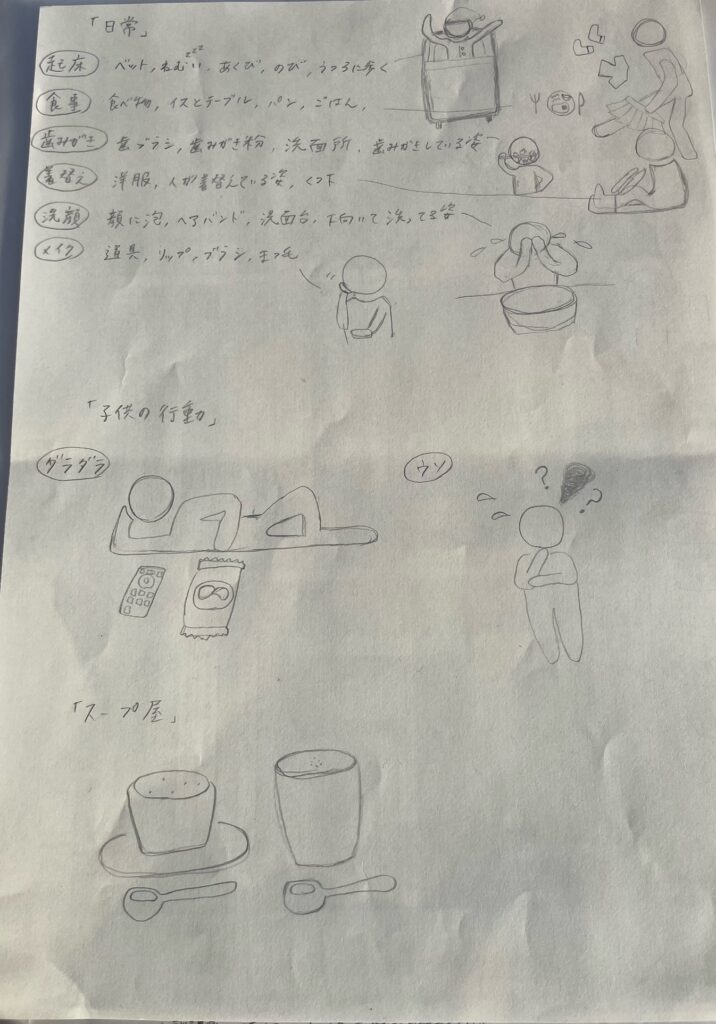 「日常」
起床 ベット,ねむい,zzz あくび,のび,うつろに歩く
食事 食べ物,イスとテーブル,パン,ごはん,
歯みがき 歯ブラシ,歯みがき粉,洗面所,歯みがきしている姿
着替え 洋服,人が着替えている姿,くつ下
洗顔 顔に泡,ヘアバンド,洗面台,下向いて洗ってる姿
メイク 道具,リップ,ブラシ,まつ毛
「子供の行動」
ダラダラ ウソ
? ?
「スープ屋」